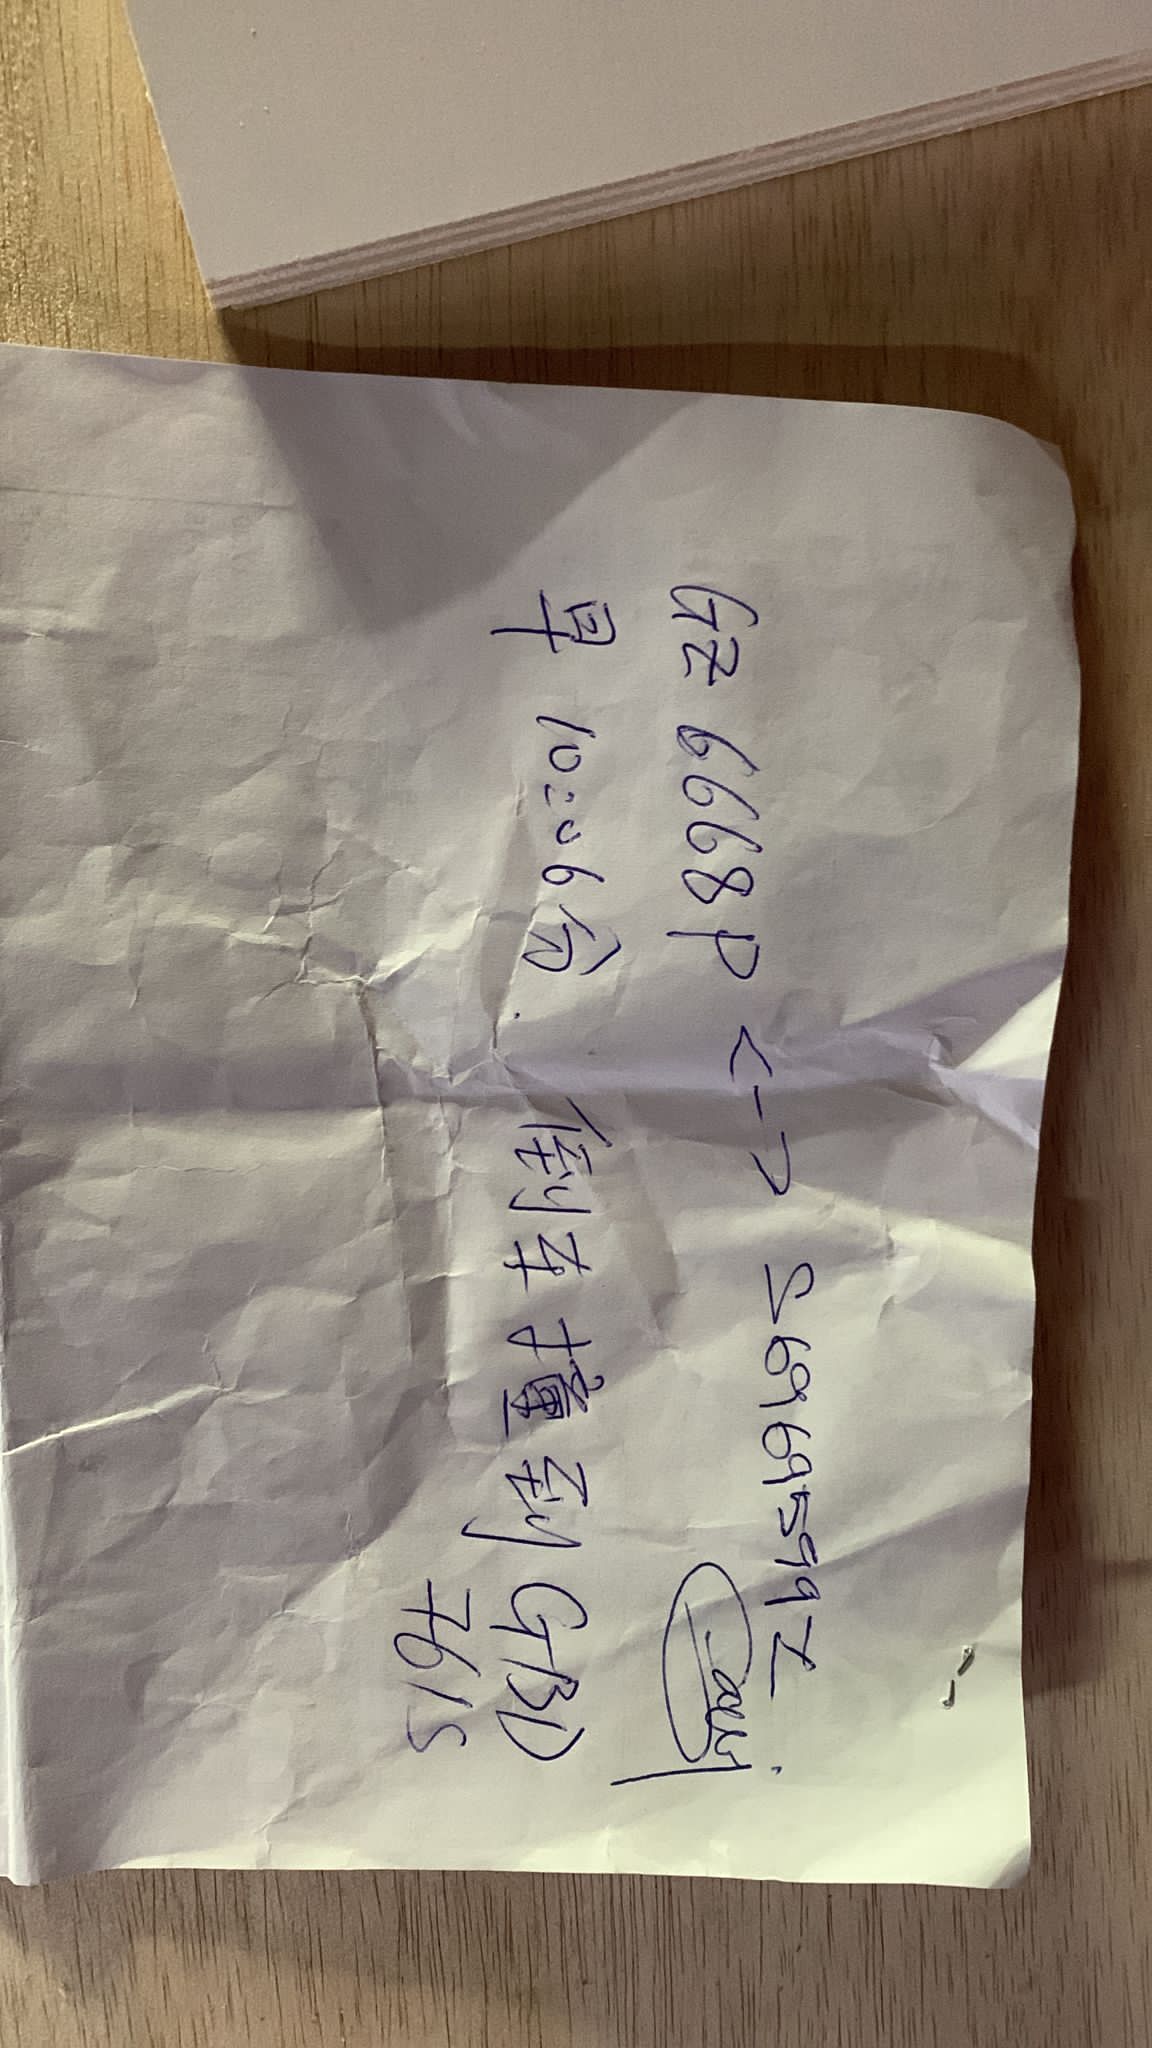 GZ 6668P <-> S6969599Z
早 10:06分. 倒车撞到 GBD
7615